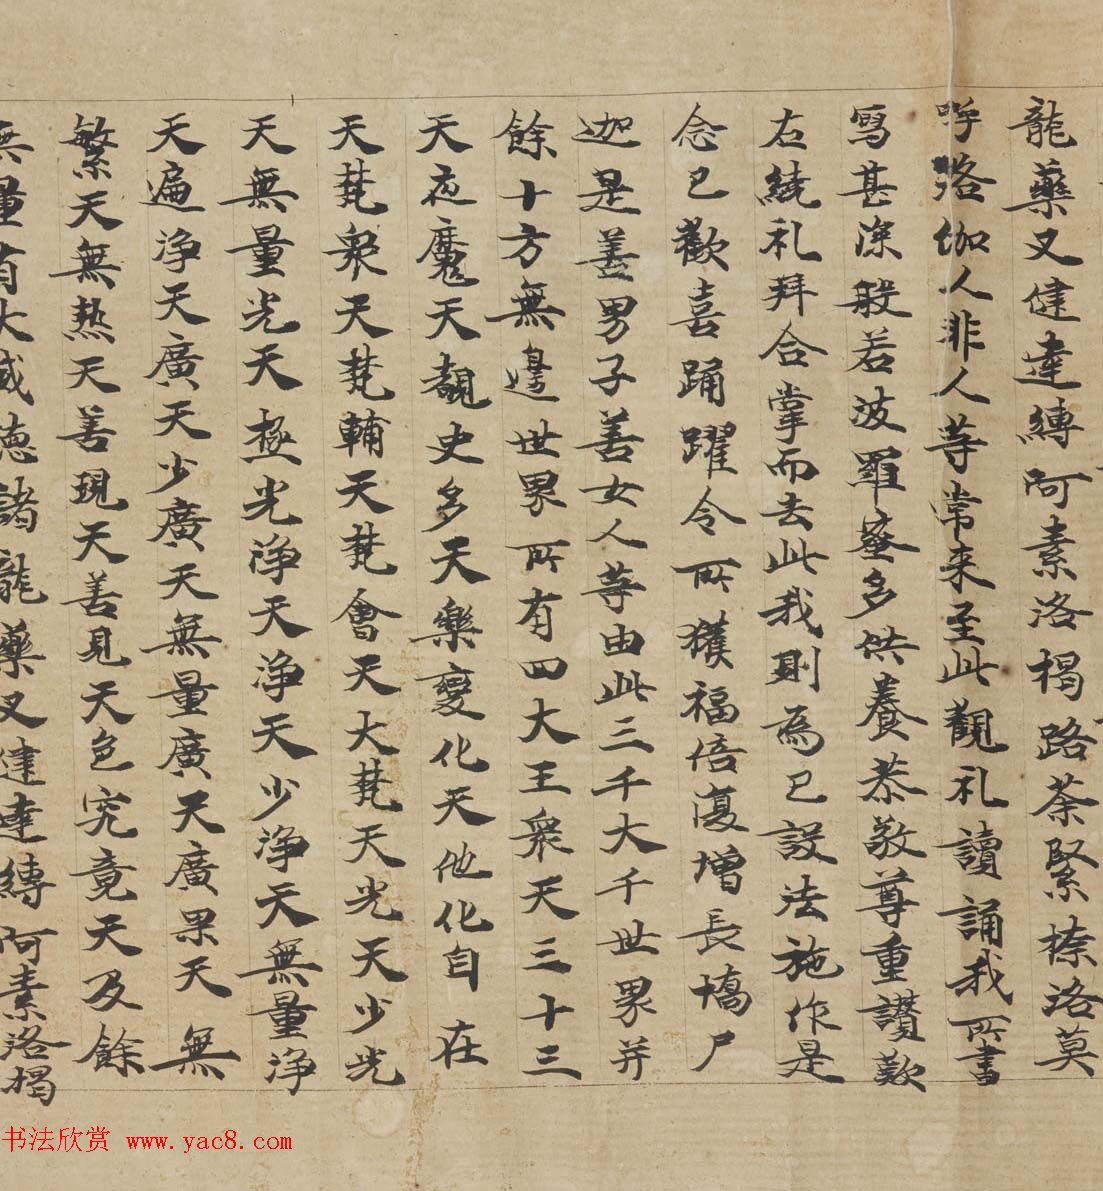 龍藥叉健達縛阿素洛揭路荼緊捺洛莫
呼洛伽人非人等常来至此觀礼讀誦我所書
寫甚深般若波羅蜜多供養恭敬尊重讃歎
右繞礼拜合掌而去此我則為已設法施作是
念已歡喜踊躍令所獲福倍復增長憍尸
迦是善男子善女人等由此三千大千世界并
餘十方無邊世界所有四大王衆天三十三
天夜魔天覩史多天樂變化天他化自在
天梵衆天梵輔天梵會天大梵天光天少光
天無量光天極光浄天浄天少浄天無量浄
天遍浄天廣天少廣天無量廣天廣果天無
繁天無熱天善現天善見天色究竟天及餘
無量有大威徳諸龍藥叉健達縛阿素洛揭
书法欣赏 www.yac8.com